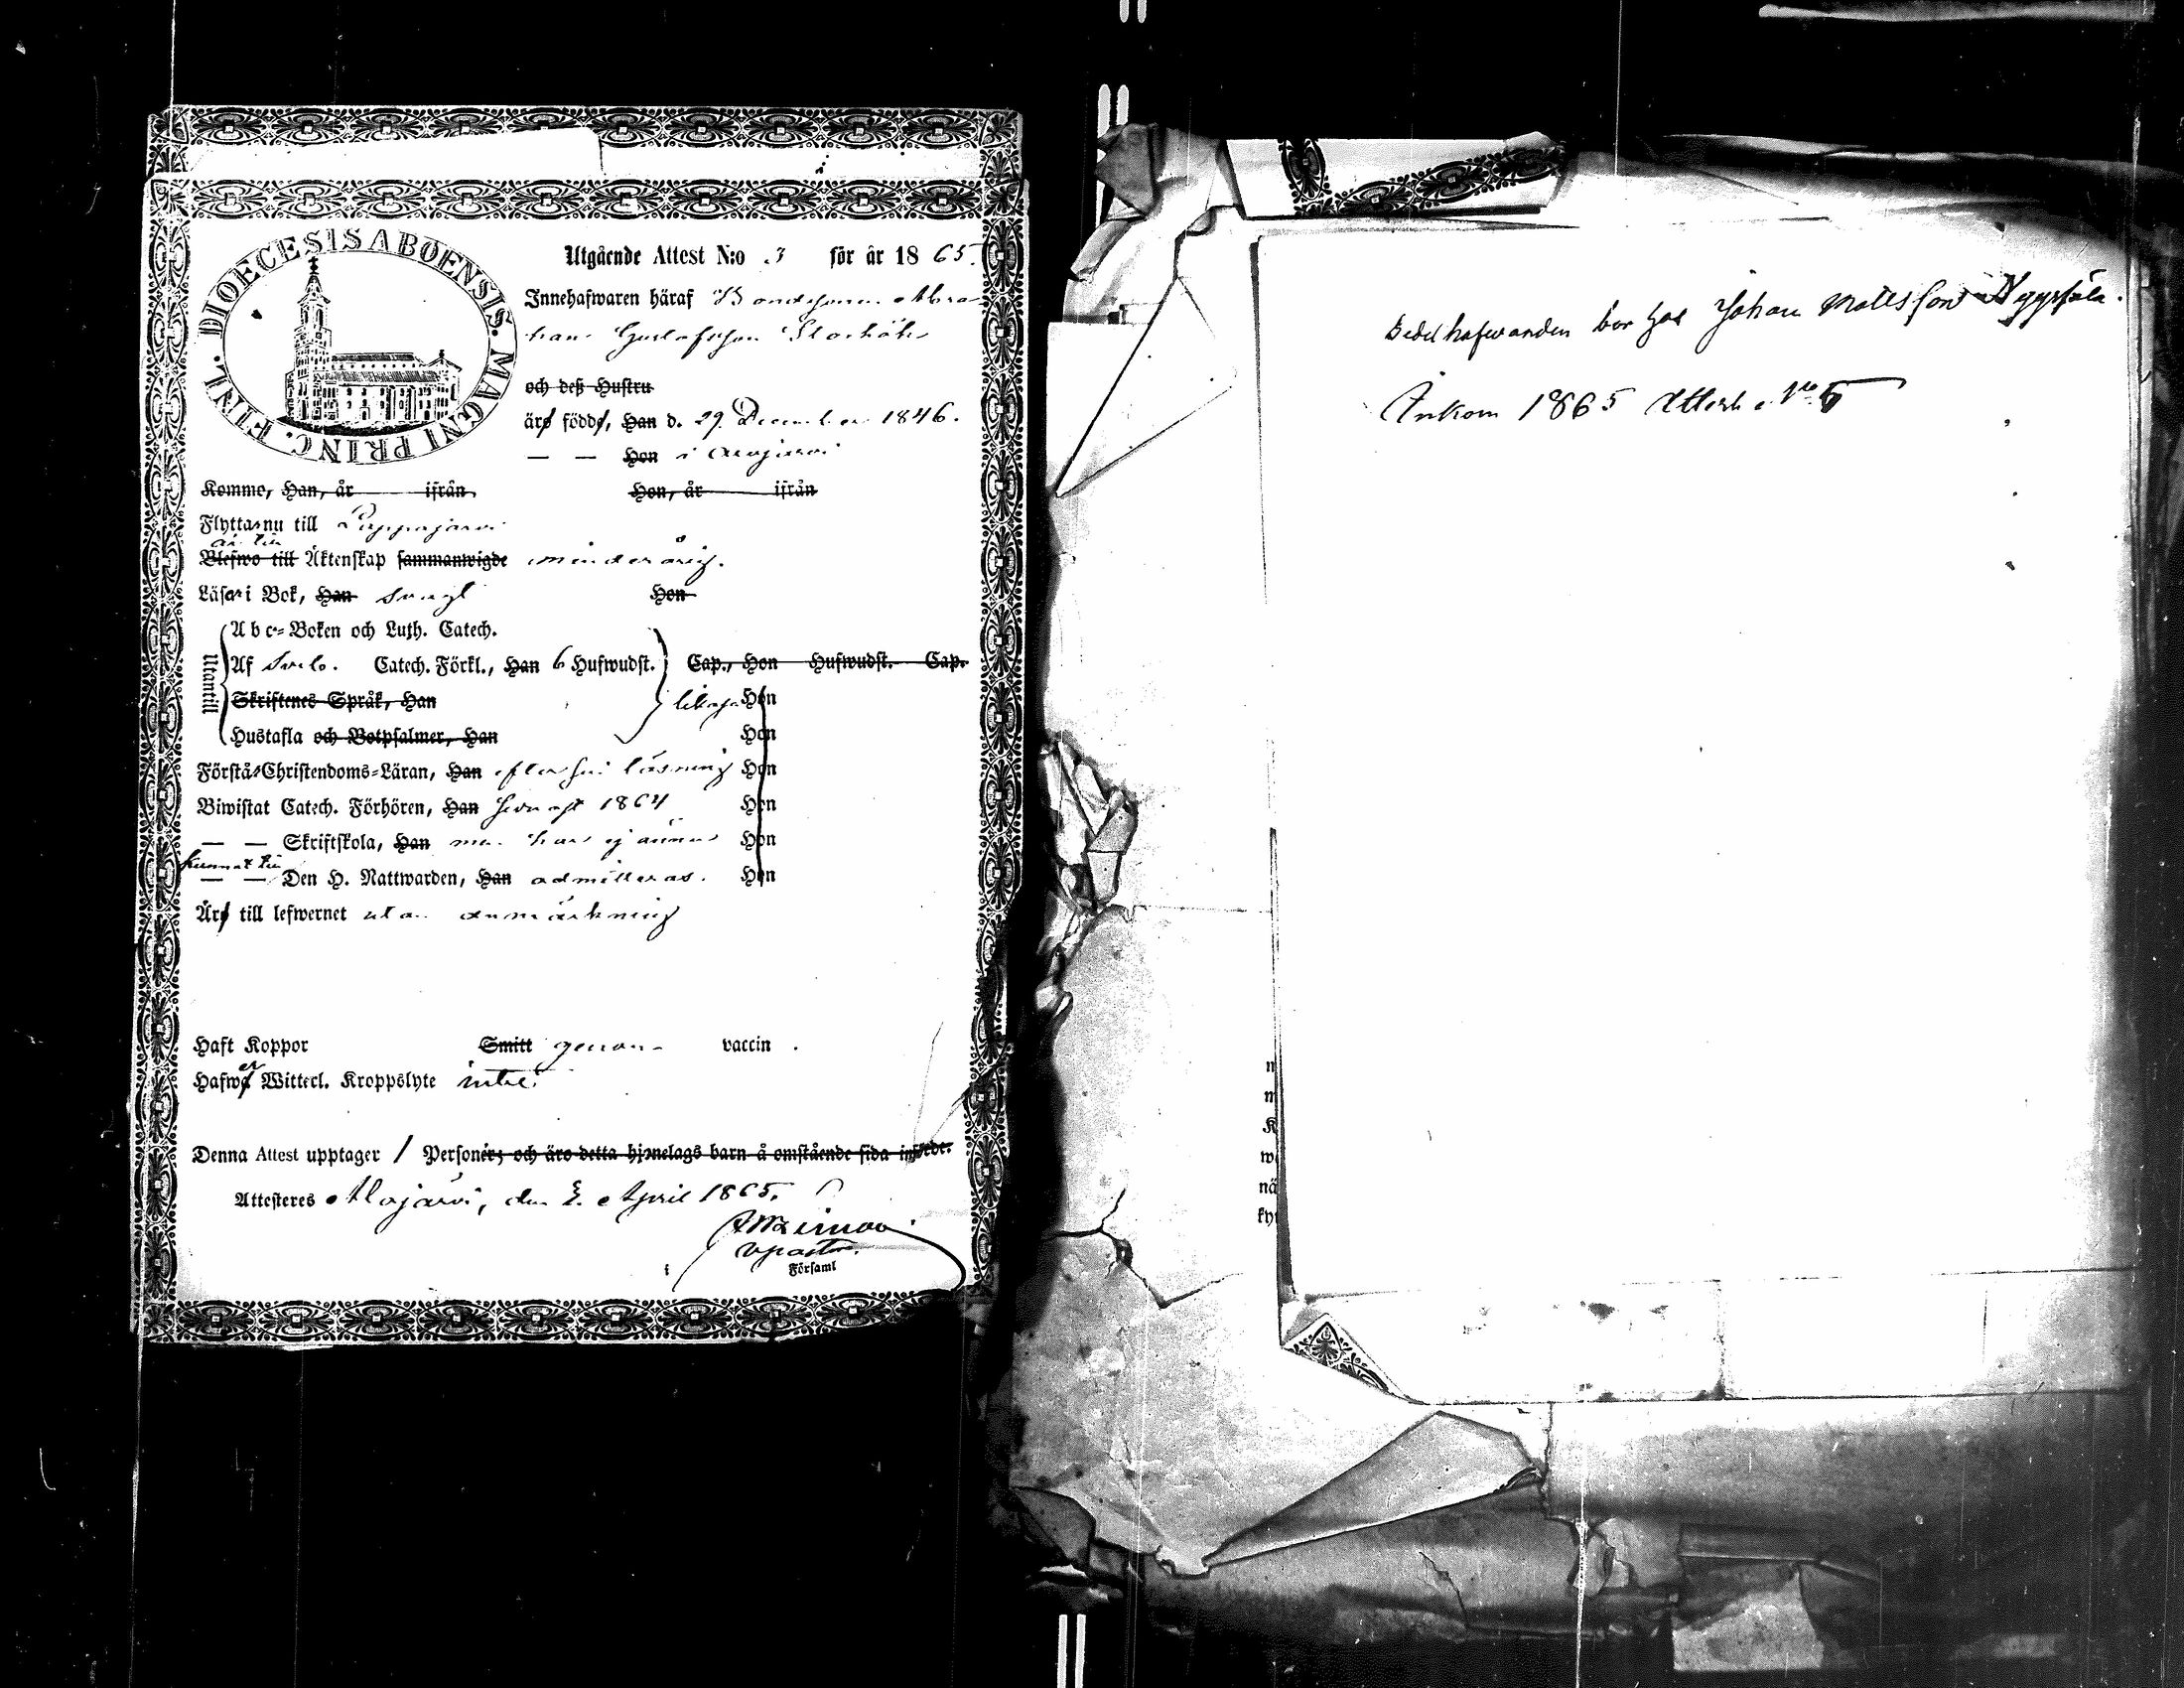 DIOECESIS ABOENSIS. MAGNI PRINC. FINL.
Utgående Attest N:o 3 för år 1865.
Innehafwaren häraf Bondesonen Abra
ham Gustafsson
och deß Hustru
äro född, Han d. 29 December 1846.
— — Hon i Alajärvi
Komme, Han, år ifrån Hon, år ifrån
Flyttar nu till Lappajärvi
är till
Blefwo till Äktenskap sammanwigde minderårig.
Läser i Bok, Han swagt Hon
Utantill
Abc-Boken och Luth. Catech.
Af Catech. Förkl., Han 6 Hufwudst. Cap., Hon Hufwudst. Cap.
Skriftenes Språk, Han likaså Hon
Hustafla och Botpsalmer, Han Hon
Förstå Christendoms-Läran, Han efter sin läsning Hon
Biwistat Catech. Förhören, Han senast 1864 Hon
— — Skriftskola, Han men har ej ännu Hon
kunnat till
— — Den H. Nattwarden, Han admitteras. Hon
Äro till lefwernet utan anmärkning
Haft Koppor Smitt genom vaccin.
Hafwer Witterl. Kroppslyte intet
Denna Attest upptager 1 Personer; och äro detta hjonelags barn å omstående sida införde.
Attesteres Alajärvi, den 2. April 1865.
v pastor.
Församl
Sedelhafwanden bor hos Johan Mattsson
Ankom 1865 Attest No 5
m
m
K
w
nä
ky